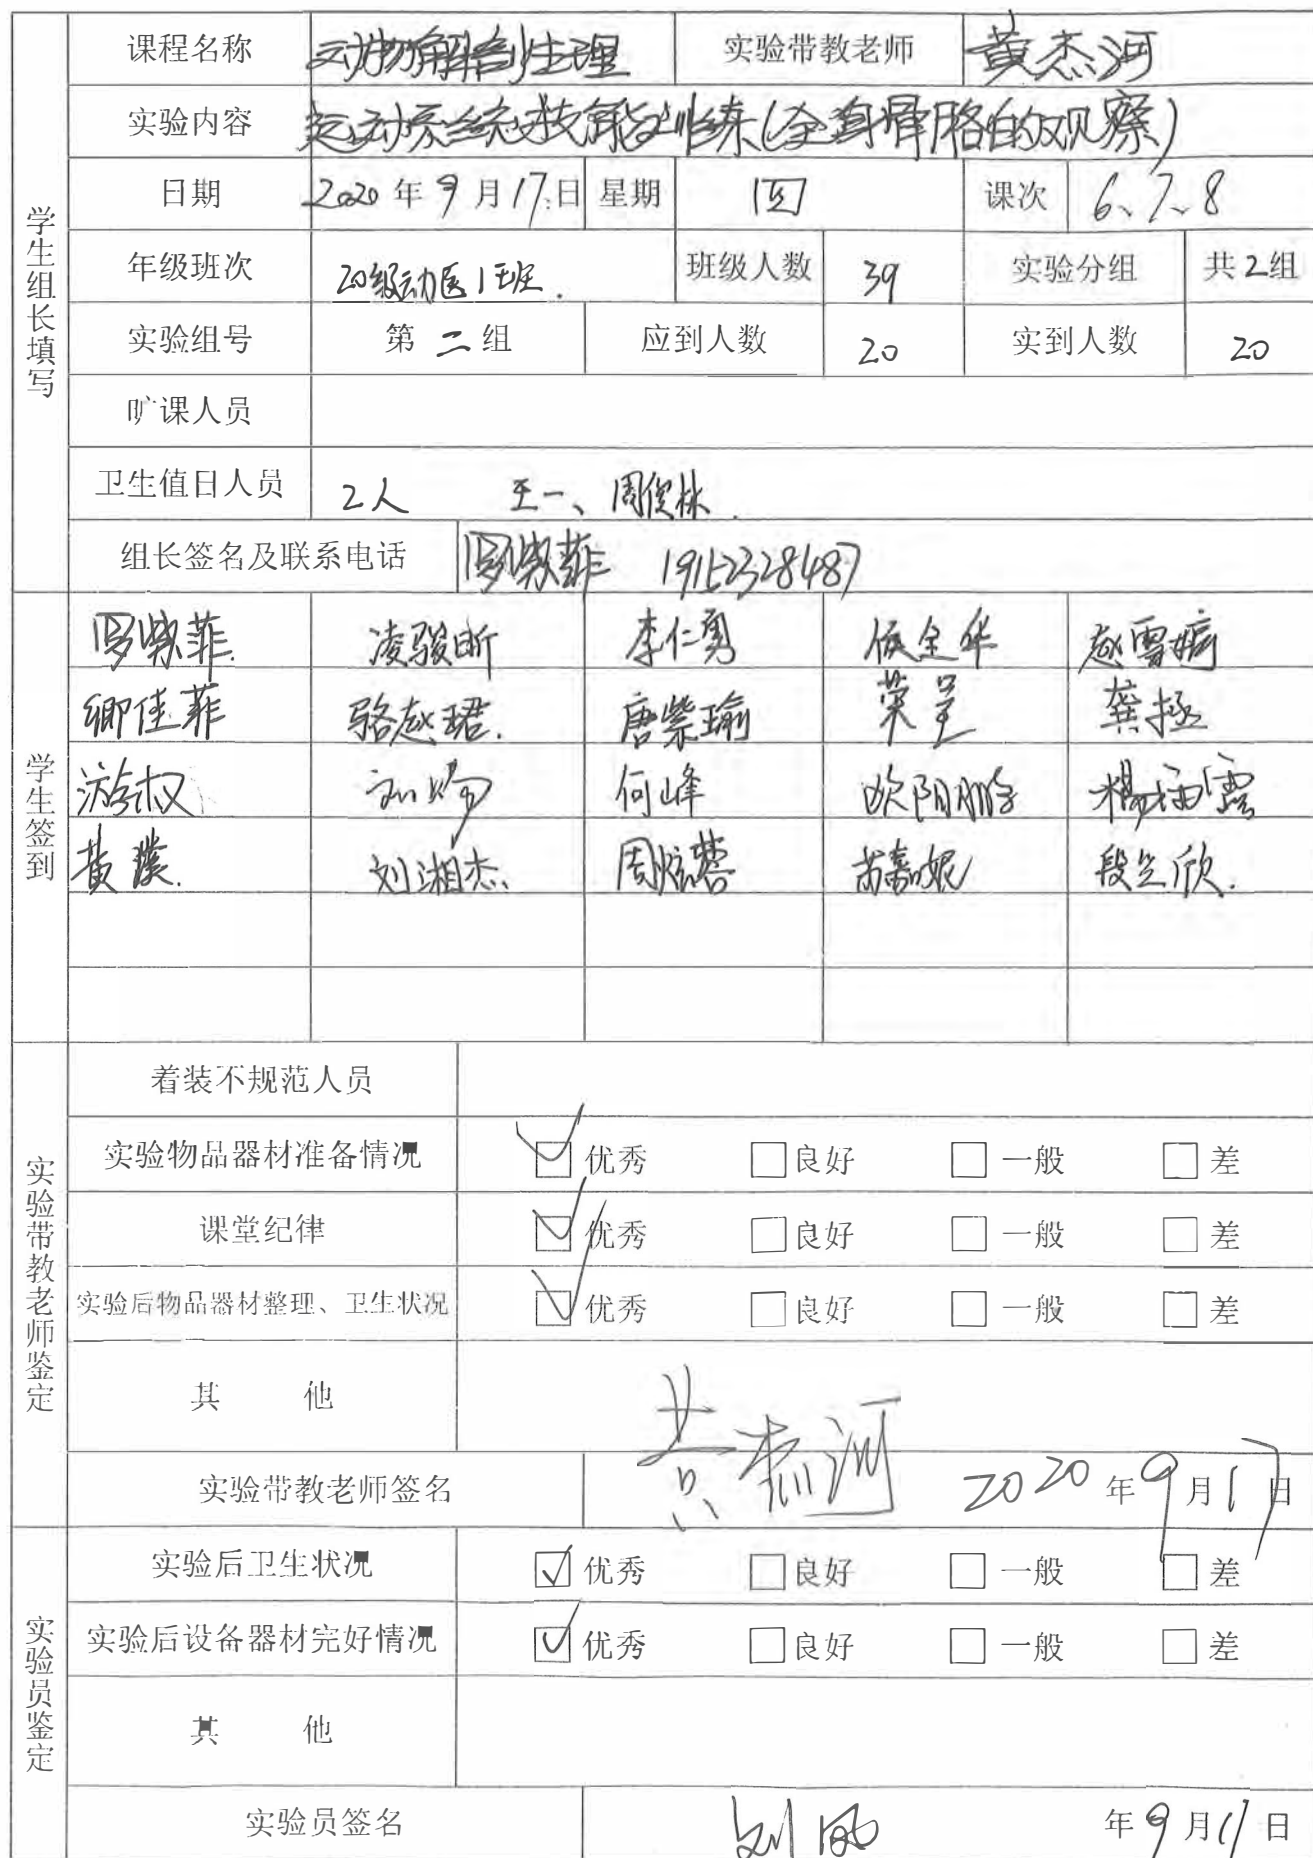 学生组长填写
课程名称 动物解剖生理 实验带教老师 黄杰河
实验内容 运动系统技能训练(全身骨骼的观察)
日期 2020年9月17日 星期 四 课次 6、7、8
年级班次 20级动医1班. 班级人数 39 实验分组 共2组
实验组号 第二组 应到人数 20 实到人数 20
旷课人员
卫生值日人员 2人 王一、周俊林.
组长签名及联系电话 罗紫菲 19152328487
学生签到
罗紫菲. 凌骏昕 李仁勇 侯全华 赵雪娟
卿佳菲 骆赵珺. 唐紫瑜 荣 龚拯
刘 何峰 欧阳鹏 杨雨露
黄璞. 刘湘杰. 周炫蓉 苏嘉妮 段芝欣.
实验带教老师鉴定
着装不规范人员
实验物品器材准备情况 ☑优秀 □良好 □一般 □差
课堂纪律 ☑优秀 □良好 □一般 □差
实验后物品器材整理、卫生状况 ☑优秀 □良好 □一般 □差
其 他
实验带教老师签名 黄杰河 2020年9月17日
实验员鉴定
实验后卫生状况 ☑优秀 □良好 □一般 □差
实验后设备器材完好情况 ☑优秀 □良好 □一般 □差
其 他
实验员签名 刘凤 年9月17日